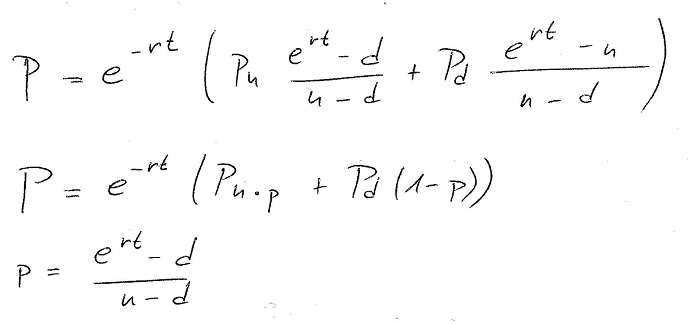 P = e^{-rt} ( P_u \frac{e^{rt} - d}{u - d} + P_d \frac{e^{rt} - u}{u - d} )
P = e^{-rt} ( P_u · p + P_d (1 - p))
p = \frac{e^{rt} - d}{u - d}